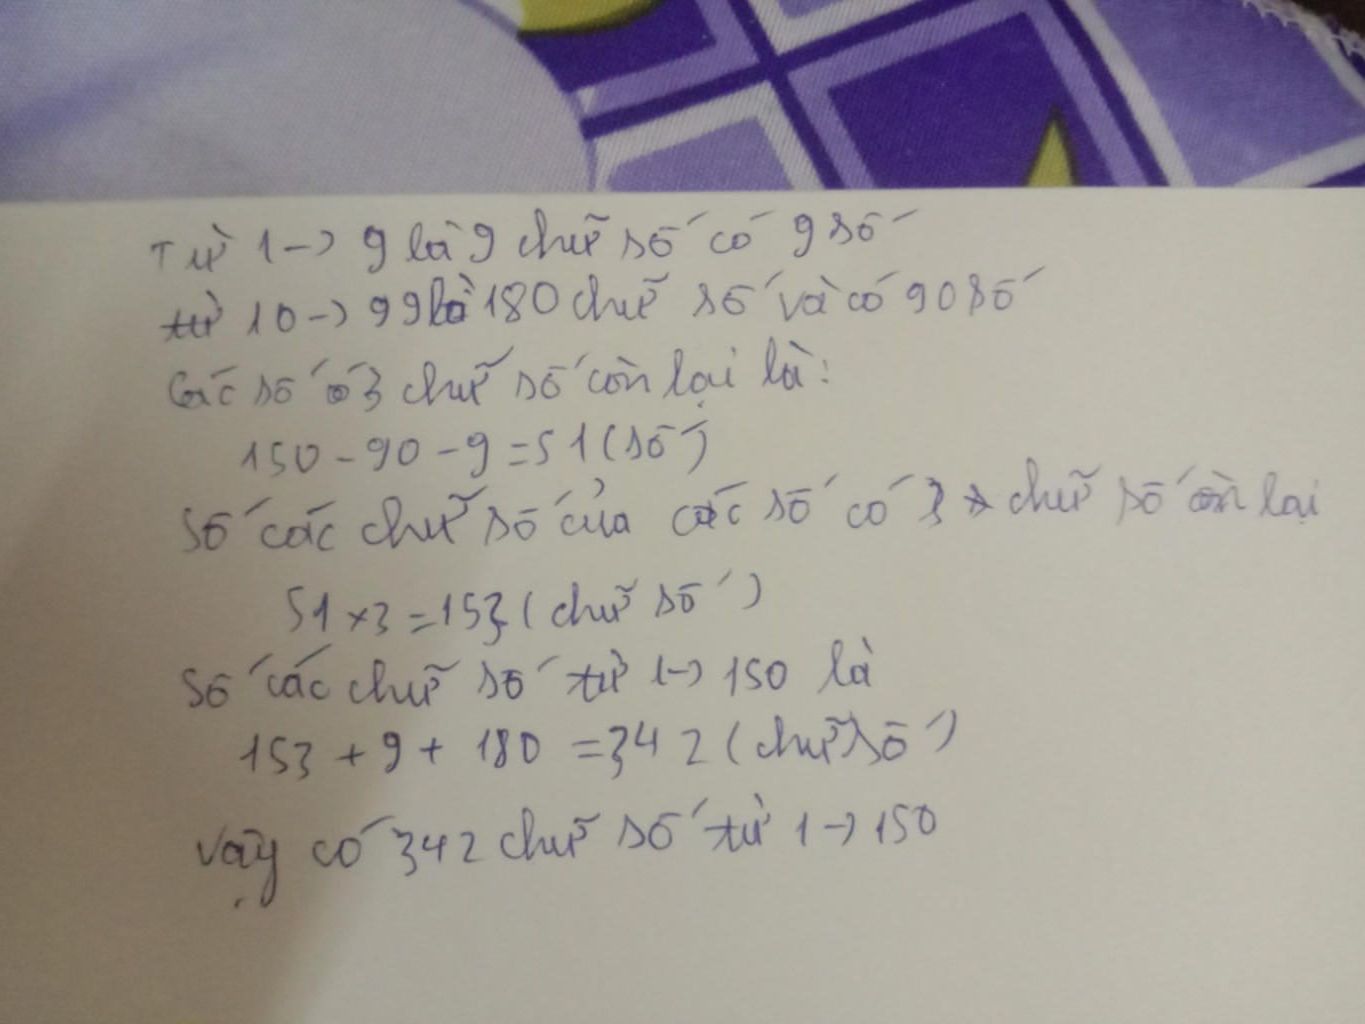 Từ 1 -> 9 là 9 chữ số có 9 số
từ 10 -> 99 là 180 chữ số và có 90 số
Các số có 3 chữ số còn lại là:
150 - 90 - 9 = 51 (số)
Số các chữ số của các số có 3 chữ số còn lại
51 x 3 = 153 (chữ số)
Số các chữ số từ 1 -> 150 là
153 + 9 + 180 = 342 (chữ số)
Vậy có 342 chữ số từ 1 -> 150